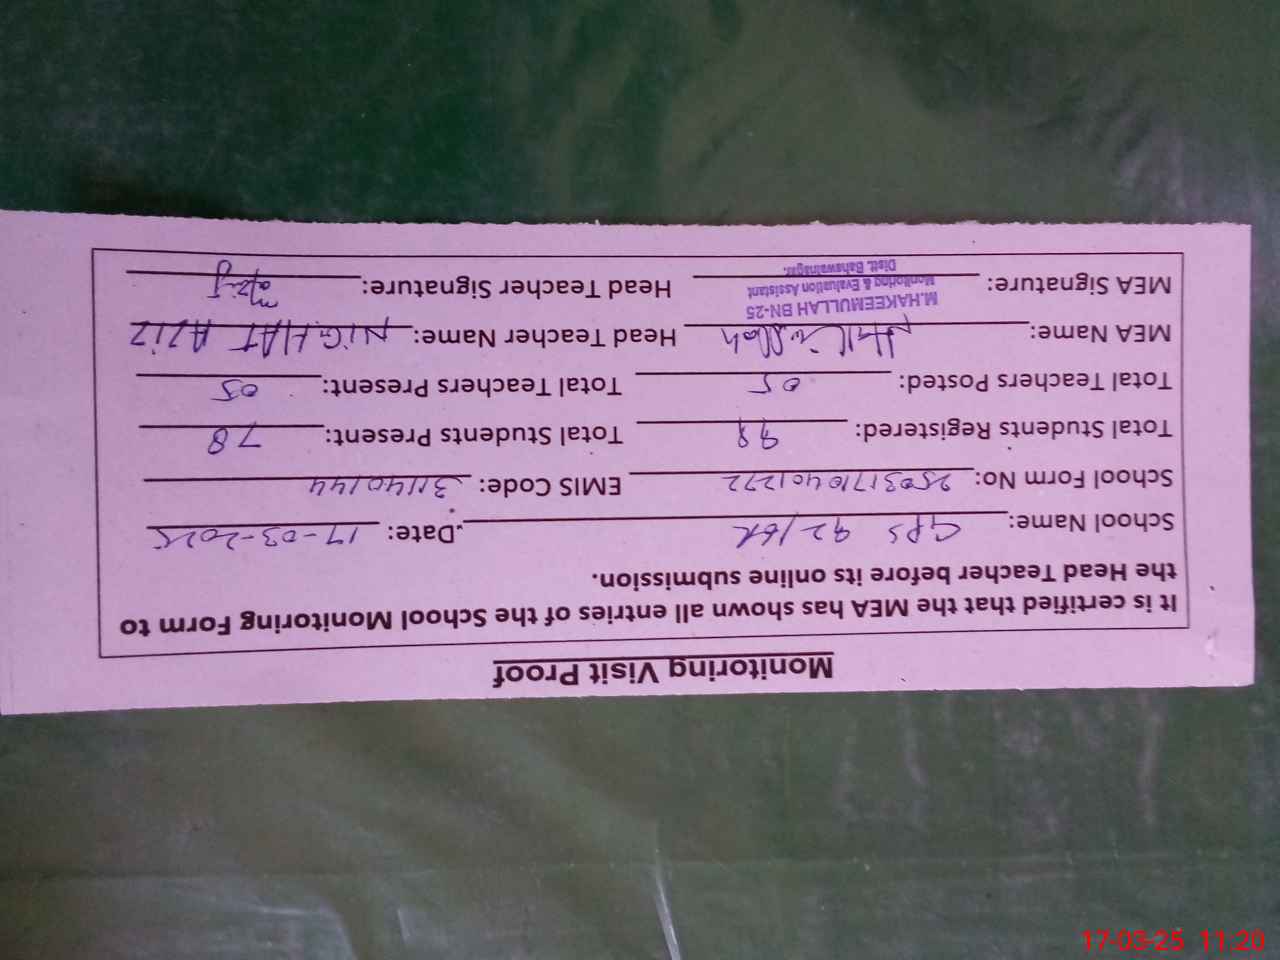 Monitoring Visit Proof
It is certified that the MEA has shown all entries of the School Monitoring Form to
the Head Teacher before its online submission.
School Name: GPS 92/6R Date: 17-03-2025
School Form No: 25031710401272 EMIS Code: 31140144
Total Students Registered: 98 Total Students Present: 78
Total Teachers Posted: 05 Total Teachers Present: 05
MEA Name: Head Teacher Name: NIGHAT AZIZ
M.HAKEEMULLAH BN-25
Monitoring & Evaluation Assistant
Distt. Bahawalnagar.
MEA Signature: Head Teacher Signature:
17-03-25 11:20